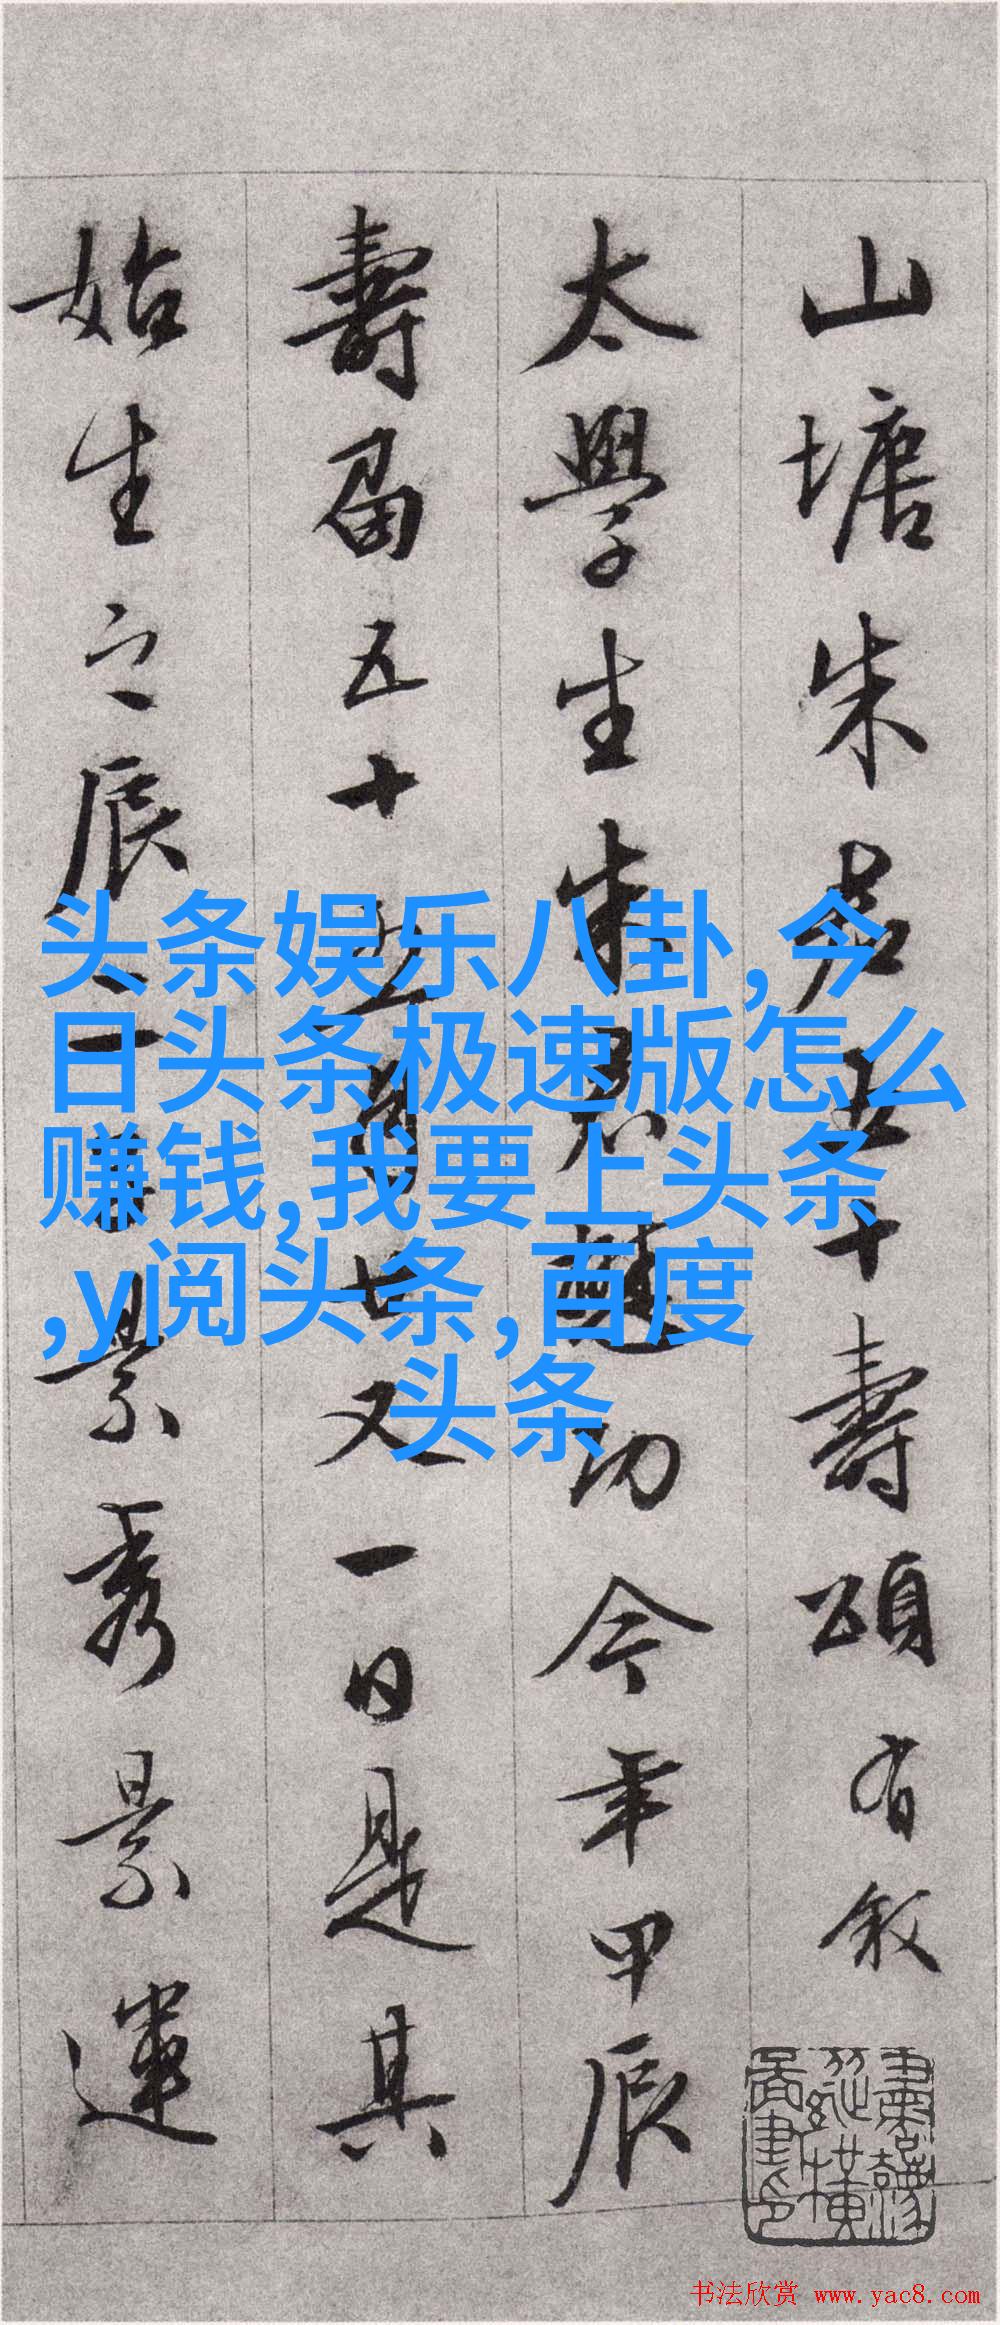 山塘朱君五十壽頌有叙
太學生朱君功今年甲辰
壽届五十五月廿又一日是其
始生之辰景秀景運
头条娱乐八卦,今
日头条极速版怎么
赚钱,我要上头条
,y阅头条,百度
头条
书法欣赏 www.yac8.com